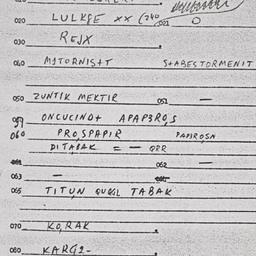 020 LULKPE xx (240 021 O
030 REJX
040 MITORNIS+T S+ABESTORMENIT
050 ZUNTIK MEKTIR 051 —
ONCUCIND+ APAP3RO,S
060 PRO,SPAPIR PAPIROSN
DITABAK = — ORR
062 —
063 —
065 TITUN QUGIL TABAK
070 KO,RAK
080 KARG2-